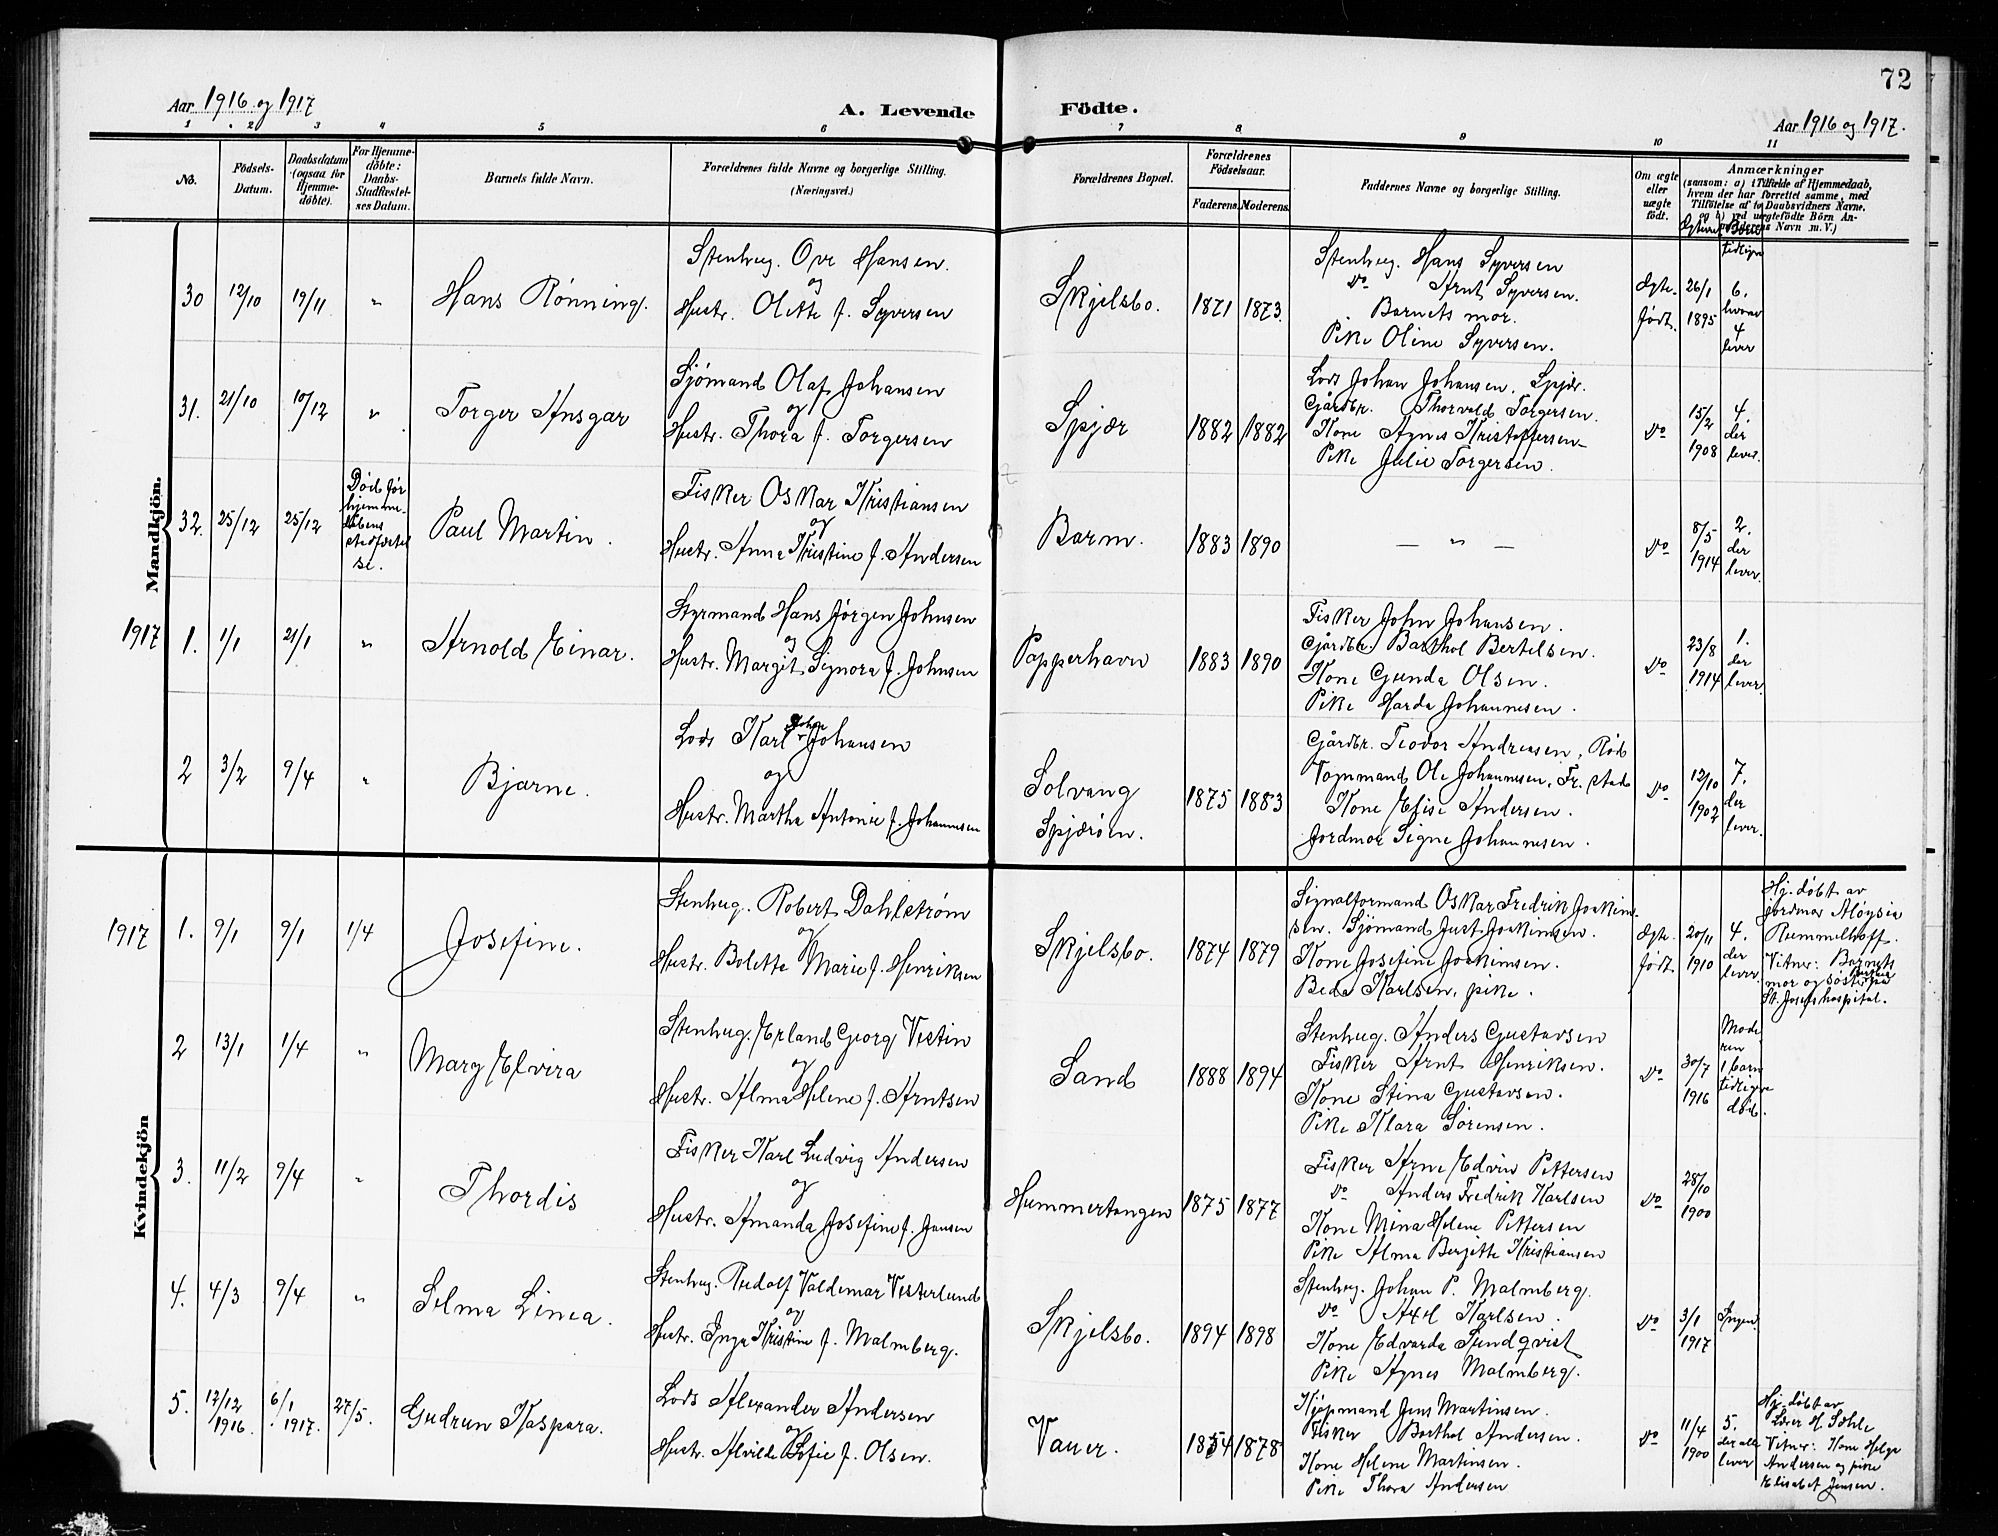 72
Aar 1916 og 1917
A. Levende Födte.
Aar 1916 og 1917.
1 2 3 4 5 6 7 8 9 10 11
No.
Födsels-Datum.
Daabsdatum (ogsaa for Hjemme-döbte).
For Hjemme-döbte: Daabs-Stadfæstel-ses Datum.
Barnets fulde Navn.
Forældrenes fulde Navne og borgerlige Stilling. (Næringsvei.)
Forældrenes Bopæl.
Forældrenes Födselsaar.
Faderens. Moderens.
Faddernes Navne og borgerlige Stilling.
Om ægte eller uægte födt.
Anmærkninger
(saasom: a) i Tilfælde af Hjemmedaab, hvem der har forrettet samme, med Tilföielse af to Daabsvidners Navne, og b) ved uægtefödte Börn An- Navn m. V.)
Mandkjön.
30 12/10 19/11 " Hans Rønning.
Stenhug. Ove Hansen.
og
Hustr. Olette f. Syversen
Skjelsbo. 1871 1873.
Stenhug. Hans Syversen
Do Arnt Syversen.
Barnets mor.
Pike Oline Syversen.
Ægte-født. 26/1 1895
Børn tidligere 6. hvorav 4 lever
31. 21/10 10/12 " Torger Ansgar
Sjømand Olaf Johansen
og
Hustr. Thora f. Torgersen
Spjær 1882 1882
Lods Johan Johansen, Spjær.
Gårdbr. Thorvald Torgersen.
Kone Agnes Kristoffersen
Pike Julie Torgersen.
Do 15/2 1908
4. der lever.
32. 25/12 25/12
Død før hjemme-dåbens stadfæstel se.
Paul Martin.
Fisker Oskar Kristiansen
og
Hustr. Anne Kristine f. Andersen
Barm. 1883 1890
— " —
Do 8/5 1914
2. der lever.
1917 1. 1/1 21/1 " Arnold Einar.
Styrmand Hans Jørgen Johnsen
og
Hustr. Margit Signora f. Johnsen
Papperhavn 1883 1890
Fisker John Johansen.
Gårdbr. Barthol Bertelsen.
Kone Gunda Olsen.
Pike Harda Johannesen.
Do 23/8 1914
1. der lever.
2 3/2 9/4 " Bjarne.
Lods Karl Johan Johansen
og
Hustr. Martha Antonie f. Johannesen
Solvang Spjærøen. 1875 1883
Gårdbr. Teodor Andreasen, Rød
Vognmand Ole Johannesen, Fr. stad
Kone Elise Andersen.
Jordmor Signe Johannesen.
Do 12/10 1902
7. der lever.
Kvindekjön
1917 1. 9/1 9/1 1/4 Josefine.
Stenhug. Robert Dahlstrøm
og
Hustr. Bolette Marie f. Henriksen
Skjelsbo. 1874 1879
Signalformand Oskar Fredrik Joakim-
sen. Sjømand Just Joakimsen.
Kone Josefine Joakimsen.
Beda Karlsen, pike.
Ægte-født. 20/11 1910
4. der lever.
Hj. døbt av jordmor Aloysia Rummelhoff.
Vitner: Barnets mor og søster på St. Josefs hospital.
2 13/1 1/4 " Mary Elvira
Stenhug. Erland Georg Vestin
og
Hustr. Alma Helene f. Arntsen
Sand 1888 1894
Stenhug. Anders Gustavsen
Fisker Arnt Henriksen.
Kone Stina Gustavsen.
Pike Klara Sørensen.
Do 30/7 1916
Mode ren 1 barn tidligere død.
3. 11/2 9/4 " Thordis
Fisker Karl Ludvig Andersen
og
Hustr. Amanda Josefine f. Jansen
Hummertangen 1875 1877
Fisker Arne Edvin Pettersen
Do Anders Fredrik Karlsen
Kone Mina Helene Pettersen
Pike Alma Berjette Kristiansen
Do 28/10 1900
4. 4/3 9/4 " Selma Linea.
Stenhug. Rudolf Valdemar Vesterlund
og
Hustr. Inga Kristine f. Malmberg.
Skjelsbo. 1894 1898
Stenhug. Johan P. Malmberg.
Do Axel Karlsen.
Kone Edvarda Sundqvist
Pike Agnes Malmberg.
Do 3/1 1917
Ingen.
5. 12/12 1916. 6/1 1917. 27/5. Gudrun Kaspara.
Lods Alexander Andersen
og
Hustr. Alvilde Sofie f. Olsen.
Vauer. 1878
Kjøpmand Jens Martinsen.
Fisker Barthol Andersen.
Kone Helene Martinsen.
Pike Thora Andersen
Do 11/4 1900
5. der alle lever
Hj. døbt av Lærer H. Sæhle
Vitner: Kone Helga Andersen og pike Elisabet Jensen.